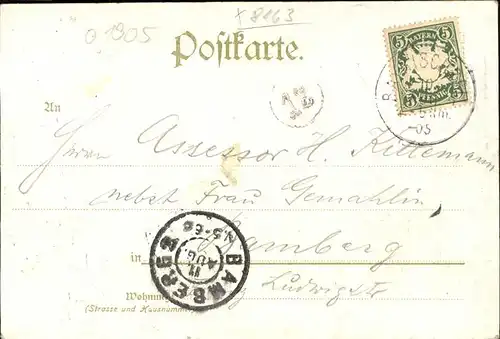 o 1905
x 8163
Postkarte.
BAYERN
5 5
PFENNIG
5 5
-05
An
Herrn Assessor H. Killemann
nebst Frau Gemahlin
in Bamberg
N.5-6
11
AUG.
BAMBERG 2
Wohnung
Ludwigstr
(Strasse und Hausnummer)